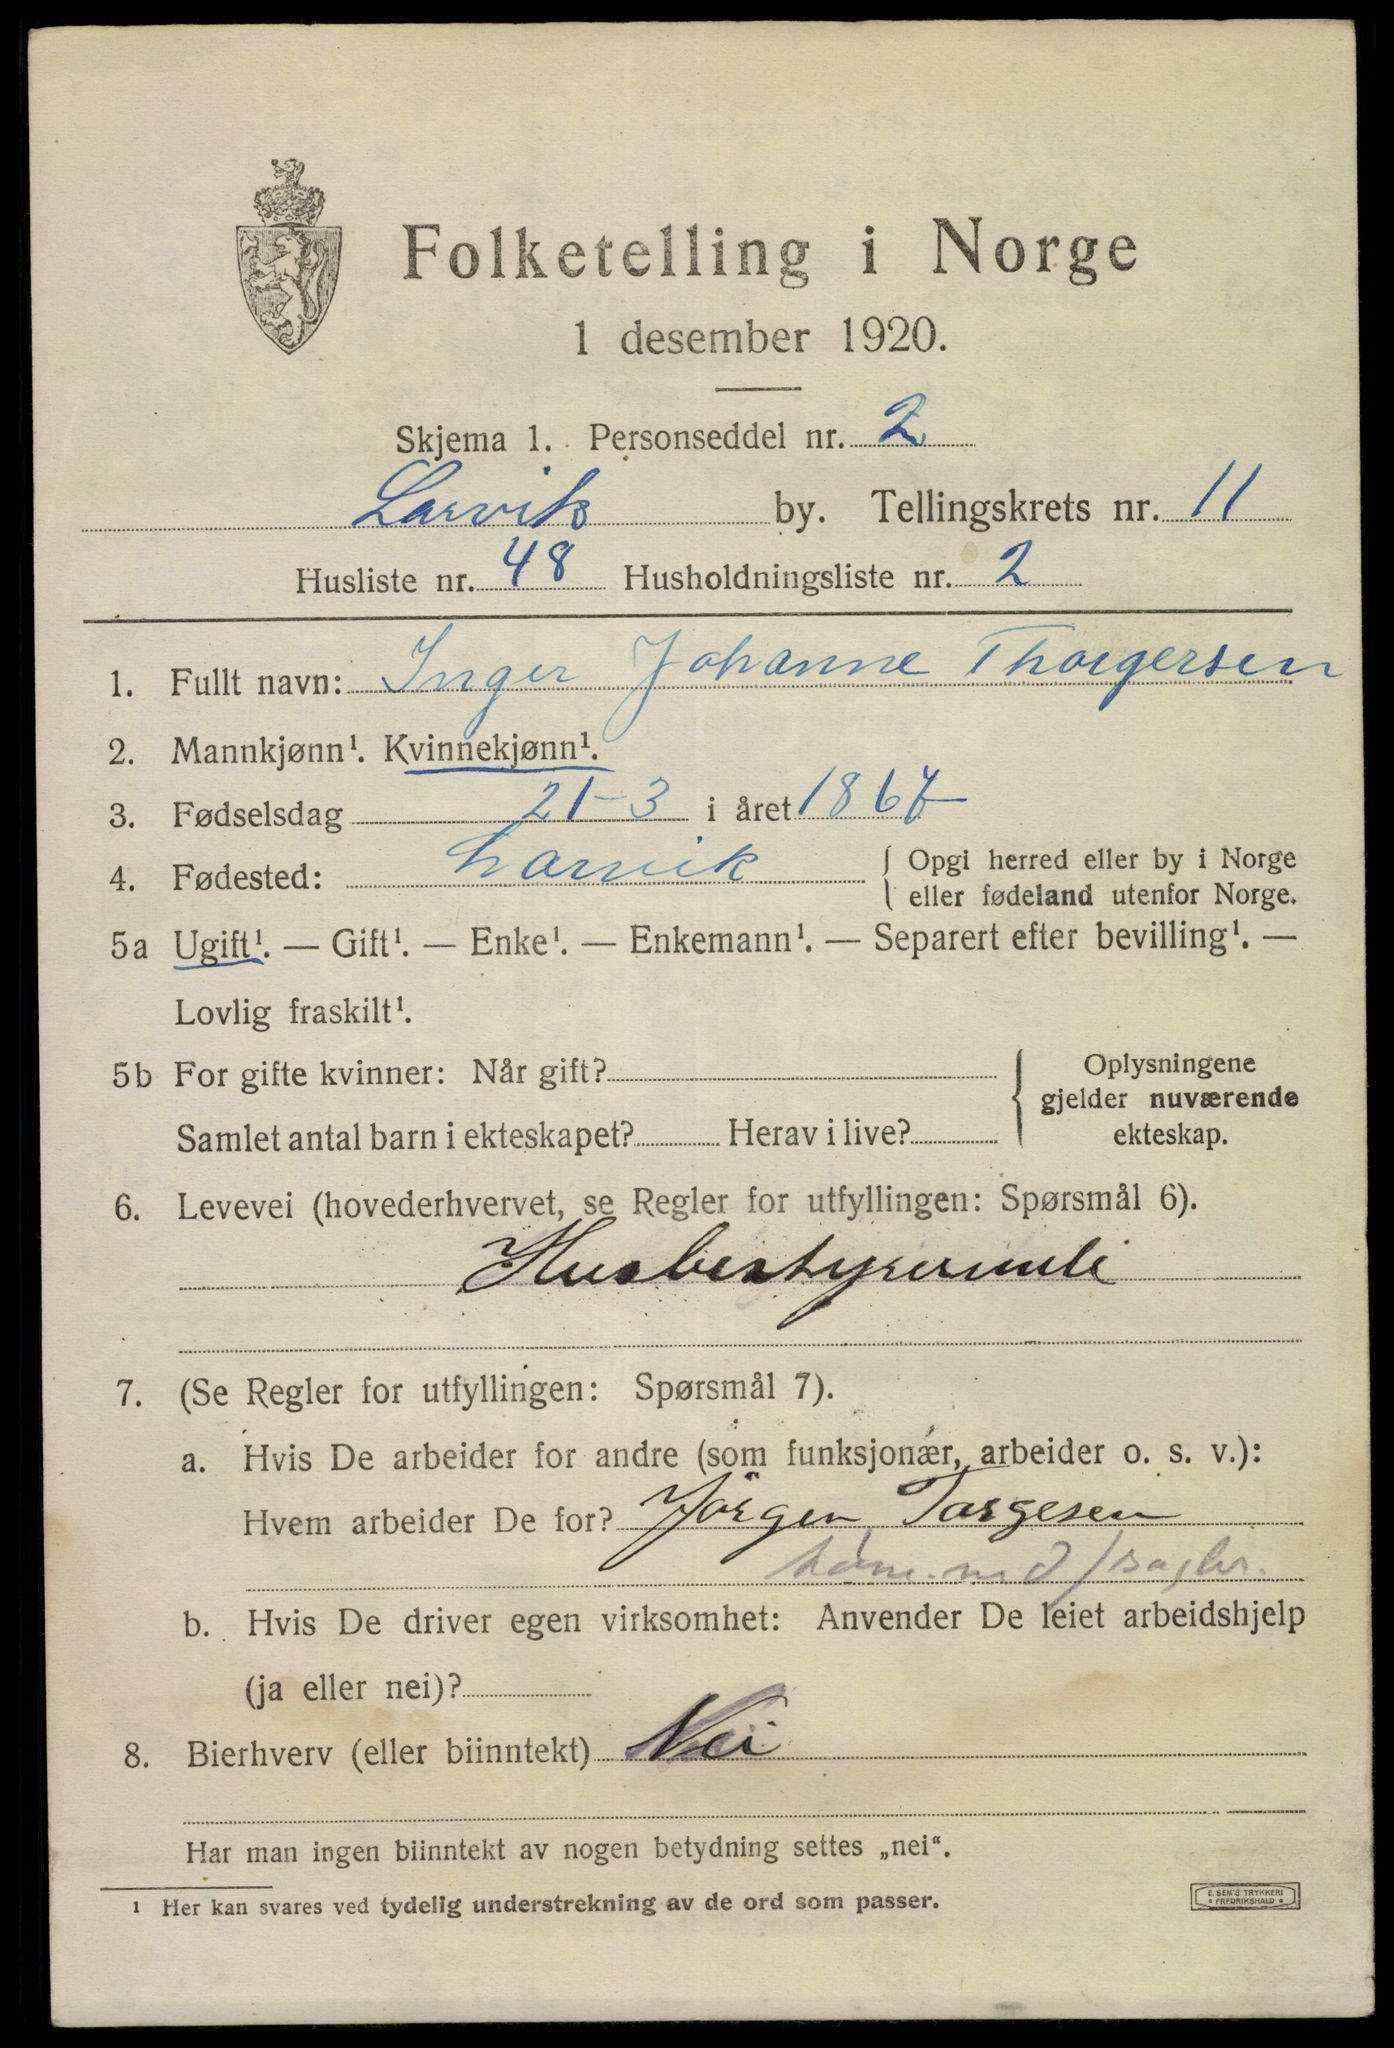 Folketelling i Norge
1 desember 1920.
Skjema 1. Personseddel nr. 2
Larvik by. Tellingskrets nr. 11
Husliste nr. 48 Husholdningsliste nr. 2
1. Fullt navn: Inger Johanne Thorgersen
2. Mannkjønn¹. Kvinnekjønn¹.
3. Fødselsdag 21-3 i året 1867
4. Fødested: Larvik { Opgi herred eller by i Norge
eller fødeland utenfor Norge.
5a Ugift¹. — Gift¹. — Enke¹. — Enkemann¹. — Separert efter bevilling¹. —
Lovlig fraskilt¹.
5b For gifte kvinner: Når gift?
Samlet antal barn i ekteskapet? Herav i live?
{ Oplysningene
gjelder nuværende
ekteskap.
6. Levevei (hovederhvervet, se Regler for utfyllingen: Spørsmål 6).
Husbestyrerinde
7. (Se Regler for utfyllingen: Spørsmål 7).
a. Hvis De arbeider for andre (som funksjonær, arbeider o. s. v.):
Hvem arbeider De for? Jörgen Torgesen
b. Hvis De driver egen virksomhet: Anvender De leiet arbeidshjelp
(ja eller nei)?
8. Bierhverv (eller biinntekt) Nei
Har man ingen biinntekt av nogen betydning settes „nei“.
¹ Her kan svares ved tydelig understrekning av de ord som passer.
E. SEM'S TRYKKERI
FREDRIKSHALD